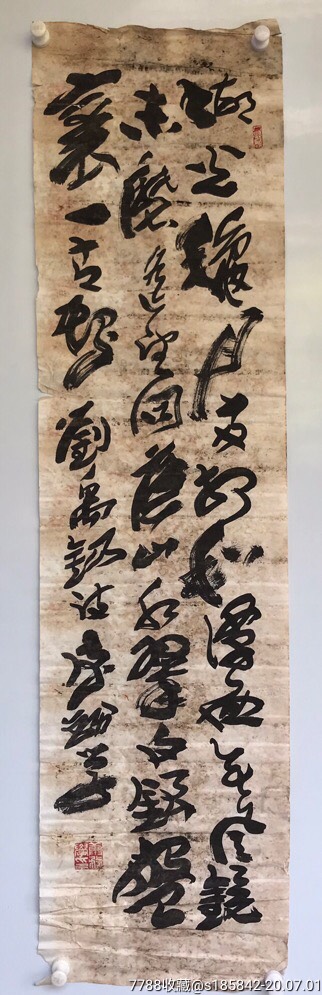 湖光秋月两相和潭面無風鏡
未磨遥望洞庭山水翠白銀盤
裏一青螺劉禹錫詩
7788收藏@s185842-20.07.01